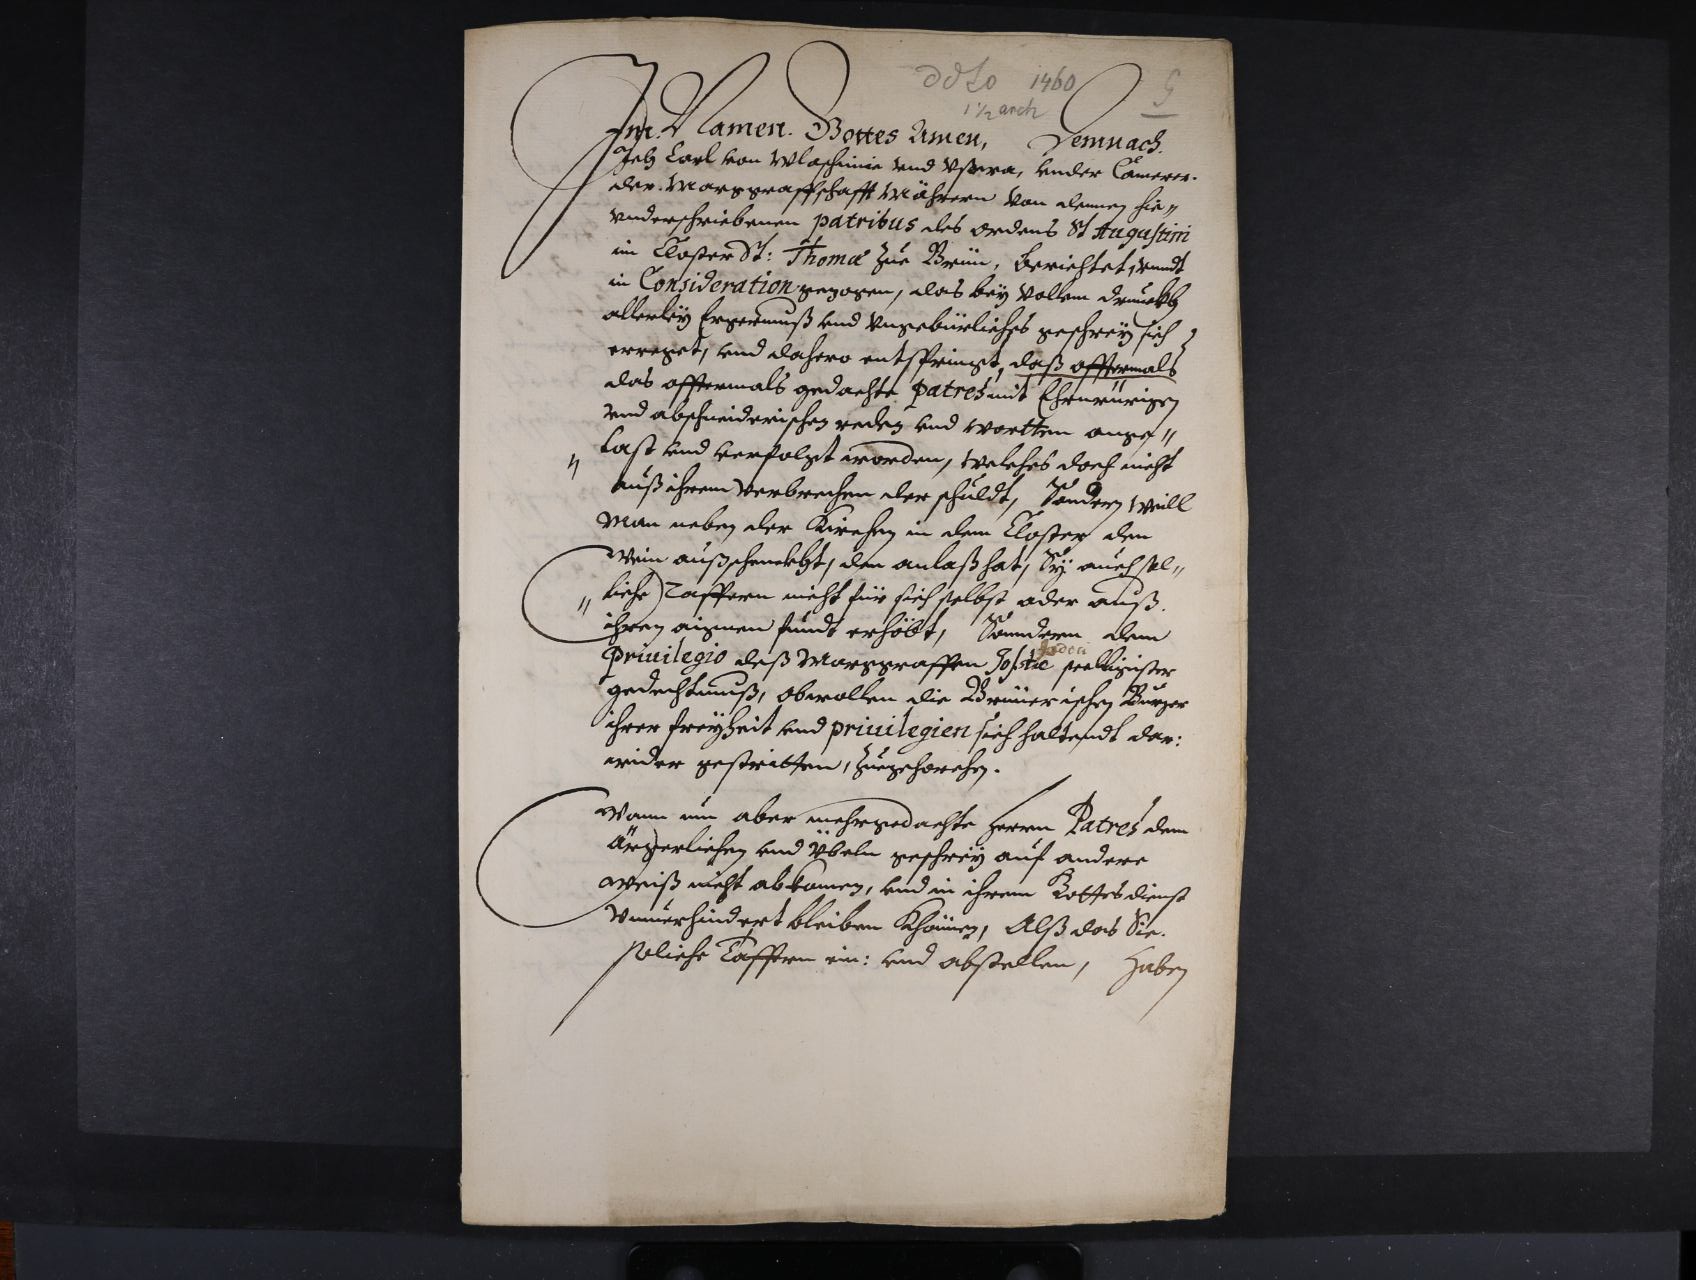 ddto 1460
1 1/2 arch
Im. Namen. Gottes Amen, Demnach.
Ich Carl von Wlaschimie vnd Vstera, vnder Cämerer.
der. Marggraffschafft Mährern von dennen hie„
vnderschriebenen patribus des ordens St Augustini
im Closter St: Thomæ zue Brün, berichtet, vnndt
in Consideration gezogen, das beÿ vollem drunckh
allerleÿ ergernuß vnd vngebürliches geschreÿ sich
erreget, vnd dahero entspringt, daß offtermals
das offtermals gedachte patres mit Ehrnrürigen
vnd abschneiderischen reden vnd wortten ange„
„ tast vnd verfolgt worden, welches doch nicht
auß ihrem verbrechen oder schuldt, Sondern weill
Man neben der Kirchen in dem Closter den
wein außschenckht, den anlaß hat, Sÿ auch sol„
„ liche Taffern nicht für sich selbst oder auß.
ihren aignen fundt erhöbt, Sonndern dem
Jodoci
Priuilegio deß Marggraffen seeligister
gedechtnuß, obwollen die Brünerischen Burger
ihrer freÿheit vnd priuilegien sich haltendt dar:
wider gestritten, zuegehorchen.
Wann nun aber mehrgedachte Herrn Patres dem
ärgerlichen vnd übeln geschreÿ auf andere
weiß nicht abkomen, vnd in ihrem Gottesdienst
vnuerhindert bleiben khönnen, Alß das Sie.
solliche Taffern ein: vnd abstellen, Haben